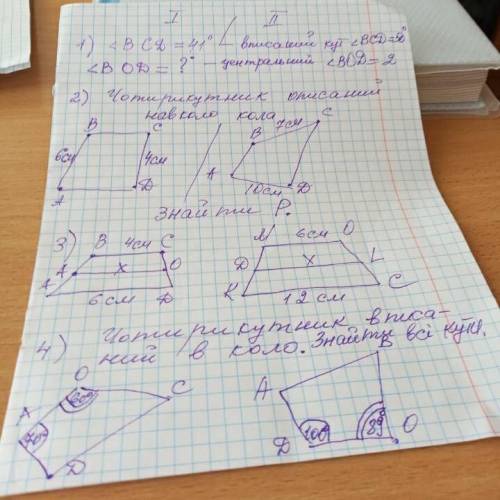 I / II
1) ∠BCD = 41° – вписаний кут ∠BCD=
∠BOD = ? – центральний ∠BOD = ?
2) Чотирикутник описаний
навколо кола
B C 7см C
6см 4см B
A D A 10см D
Знайти P.
3) B 4см C M 6см O
A X O D X L
A 6см D K 12см C
4) Чотирикутник вписа-
ний в коло. Знайти всі кути.
O 60° C B
A 70° A
D D 100° 89° O